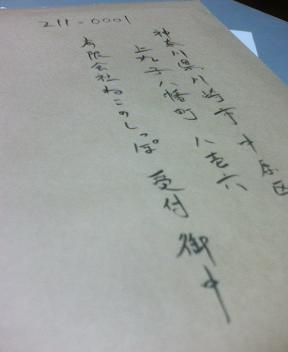 211-0001
神奈川県川崎市中原区
上丸子八幡町 八壱六
有限会社ねこのしっぽ 受付 御中